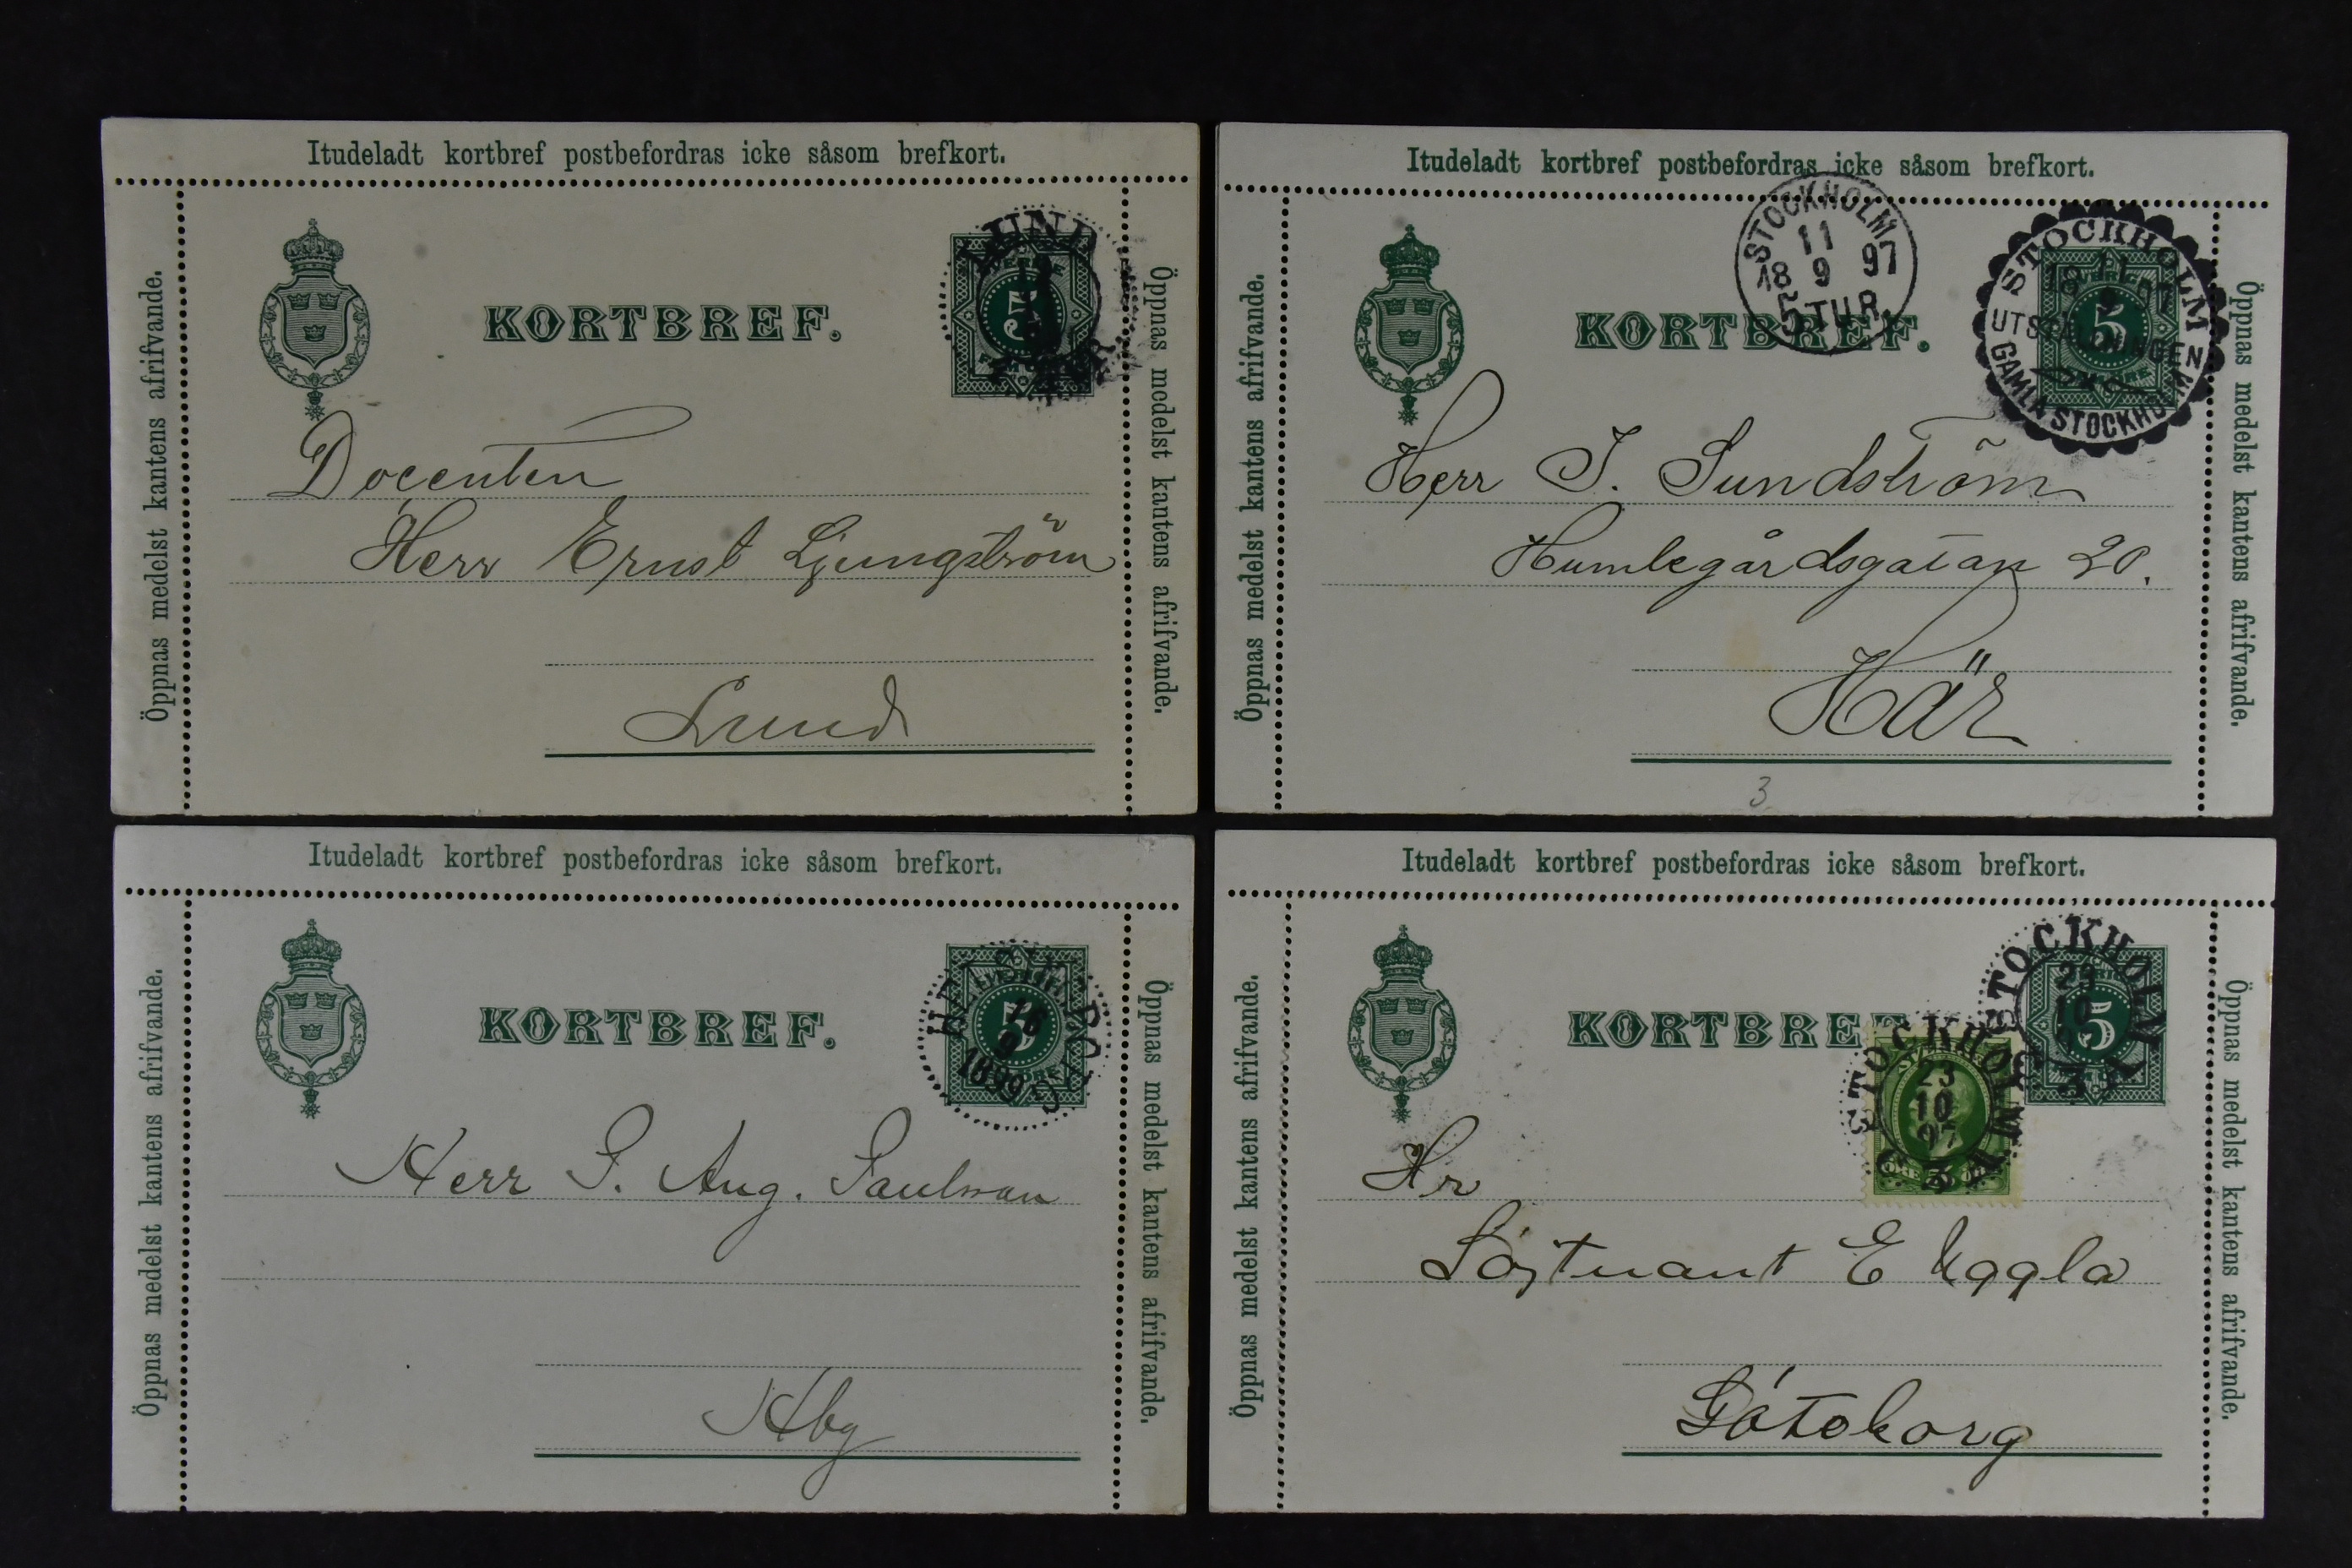 Itudeladt kortbref postbefordras icke såsom brefkort.
Öppnas medelst kantens afrifvande.
KORTBREF.
LUND
5
Öppnas medelst kantens afrifvande.
Docenten
Herr Ernst Ljungström
Lund
Itudeladt kortbref postbefordras icke såsom brefkort.
Öppnas medelst kantens afrifvande.
KORTBREF.
STOCKHOLM
11
18 9 97
5 TUR
STOCKHOLM
UTSTÄLLNINGEN
GAMLA STOCKHOLM
5
Öppnas medelst kantens afrifvande.
Herr J. Sundström
Humlegårdsgatan 20.
Här
3
Itudeladt kortbref postbefordras icke såsom brefkort.
Öppnas medelst kantens afrifvande.
KORTBREF.
HELSINGBORG
16
9
1899
5
Öppnas medelst kantens afrifvande.
Herr P. Aug. Paulman
Hbg
Itudeladt kortbref postbefordras icke såsom brefkort.
Öppnas medelst kantens afrifvande.
KORTBREF
STOCKHOLM
23
10
97
STOCKHOLM
23
10
5
Öppnas medelst kantens afrifvande.
Hr
Löjtnant E Uggla
Göteborg